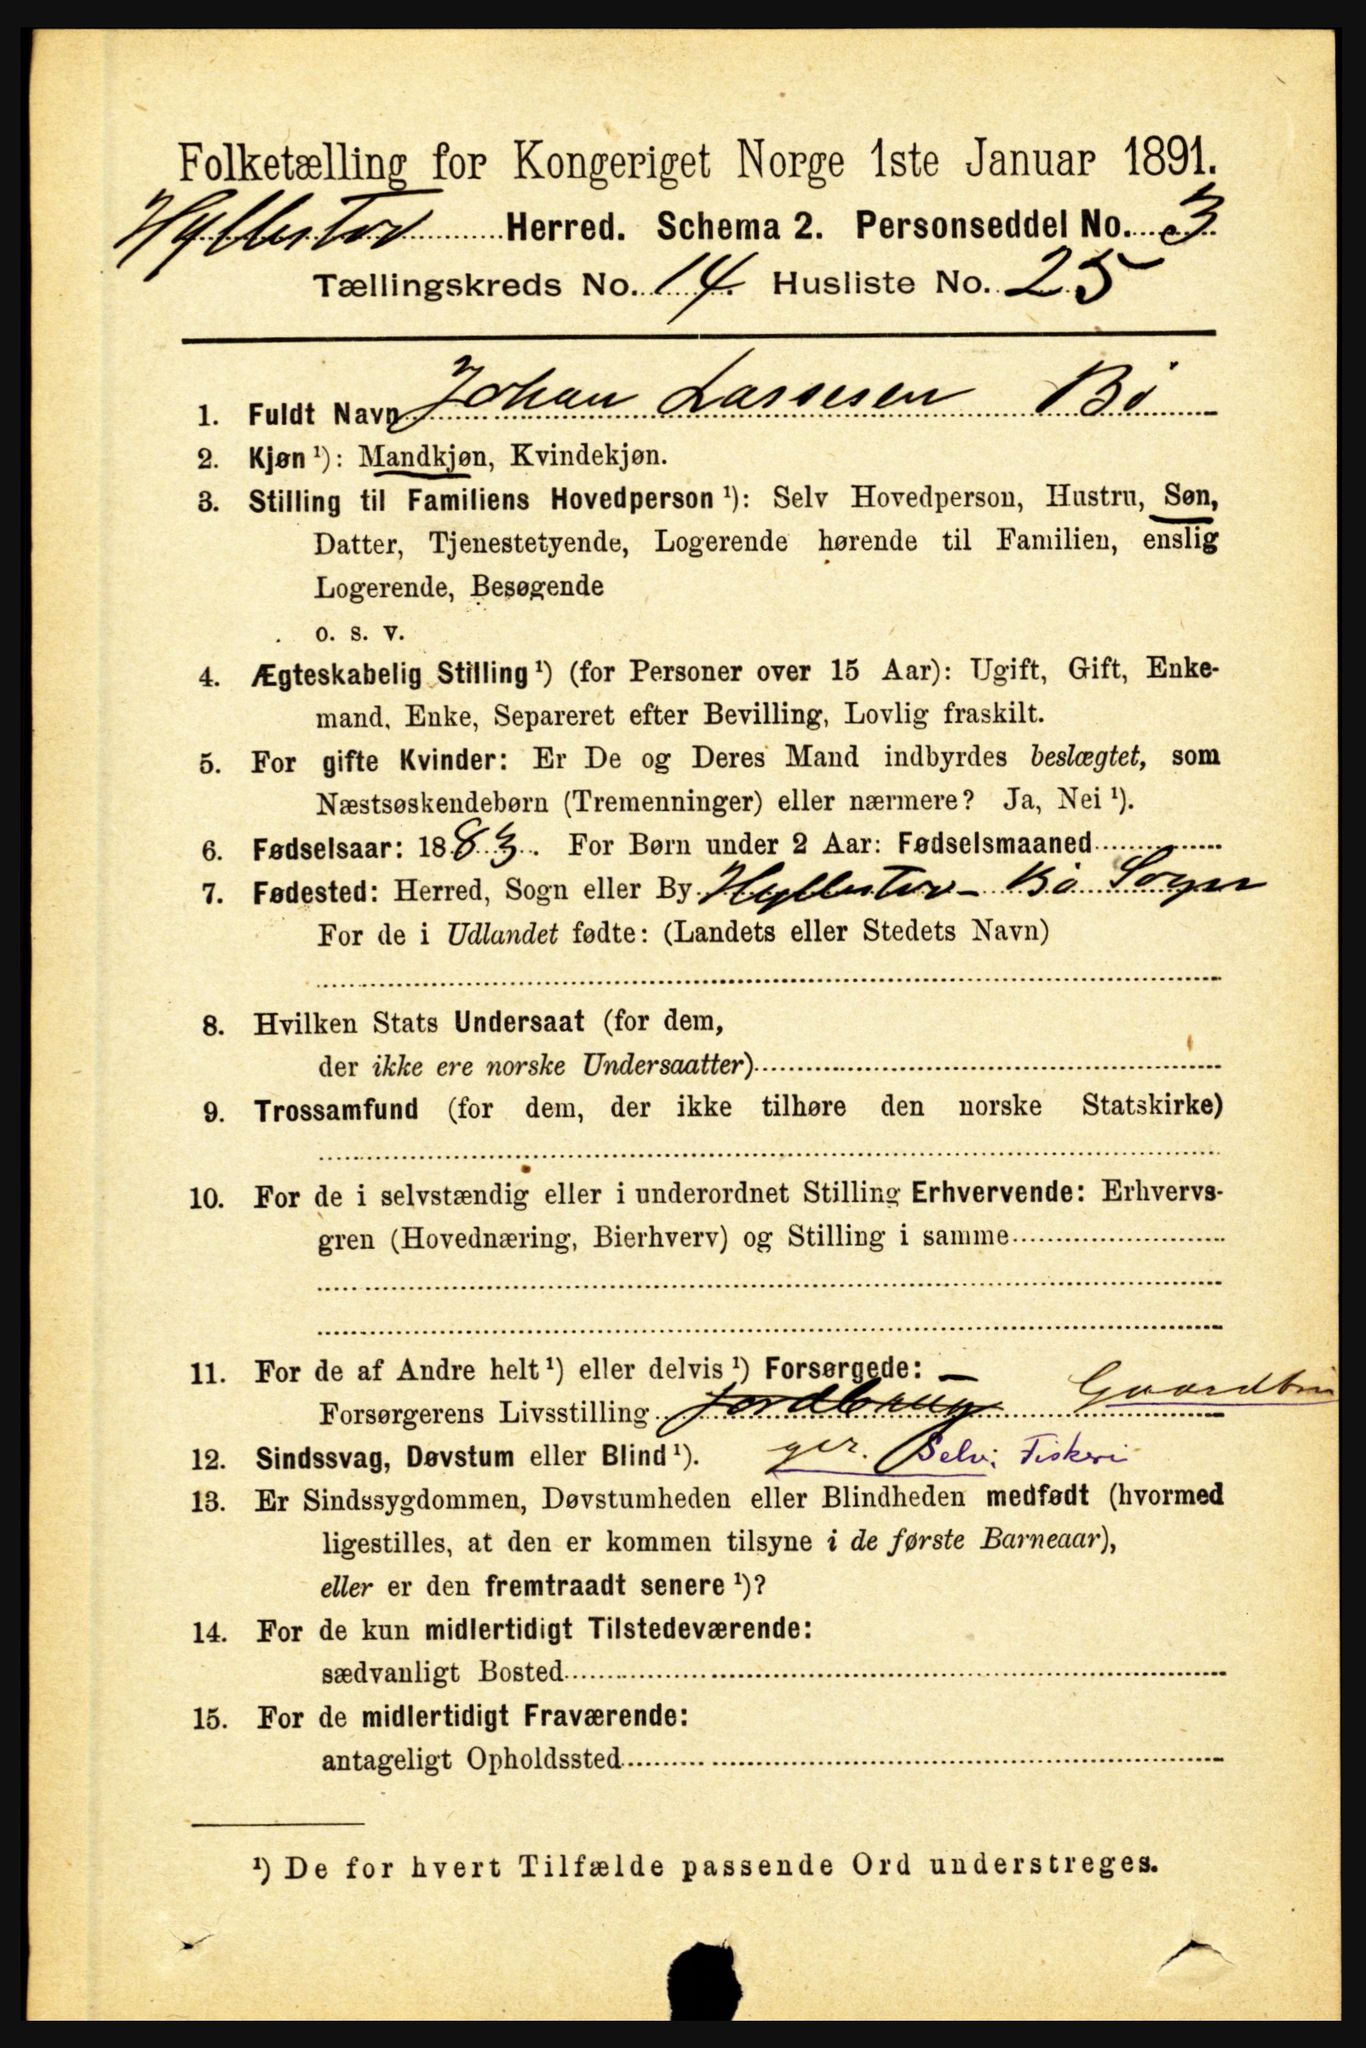 Folketælling for Kongeriget Norge 1ste Januar 1891.
Hyllestad Herred. Schema 2. Personseddel No. 3
Tællingskreds No. 14. Husliste No. 25
1. Fuldt Navn Johan Lassesen Bø
2. Kjøn ¹): Mandkjøn, Kvindekjøn.
3. Stilling til Familiens Hovedperson ¹): Selv Hovedperson, Hustru, Søn,
Datter, Tjenestetyende, Logerende hørende til Familien, enslig
Logerende, Besøgende
o. s. v.
4. Ægteskabelig Stilling ¹) (for Personer over 15 Aar): Ugift, Gift, Enke-
mand, Enke, Separeret efter Bevilling, Lovlig fraskilt.
5. For gifte Kvinder: Er De og Deres Mand indbyrdes beslægtet, som
Næstsøskendebørn (Tremenninger) eller nærmere? Ja, Nei ¹).
6. Fødselsaar: 1883. For Børn under 2 Aar: Fødselsmaaned
7. Fødested: Herred, Sogn eller By Hyllestad - Bø Sogn
For de i Udlandet fødte: (Landets eller Stedets Navn)
8. Hvilken Stats Undersaat (for dem,
der ikke ere norske Undersaatter)
9. Trossamfund (for dem, der ikke tilhøre den norske Statskirke)
10. For de i selvstændig eller i underordnet Stilling Erhvervende: Erhvervs-
gren (Hovednæring, Bierhverv) og Stilling i samme
11. For de af Andre helt ¹) eller delvis ¹) Forsørgede: —
Forsørgerens Livsstilling Jordbrug Gaardbru
ger. Selv; Fiskeri
12. Sindssvag, Døvstum eller Blind ¹).
13. Er Sindssygdommen, Døvstumheden eller Blindheden medfødt (hvormed
ligestilles, at den er kommen tilsyne i de første Barneaar),
eller er den fremtraadt senere ¹)?
14. For de kun midlertidigt Tilstedeværende:
sædvanligt Bosted
15. For de midlertidigt Fraværende:
antageligt Opholdssted
¹) De for hvert Tilfælde passende Ord understreges.